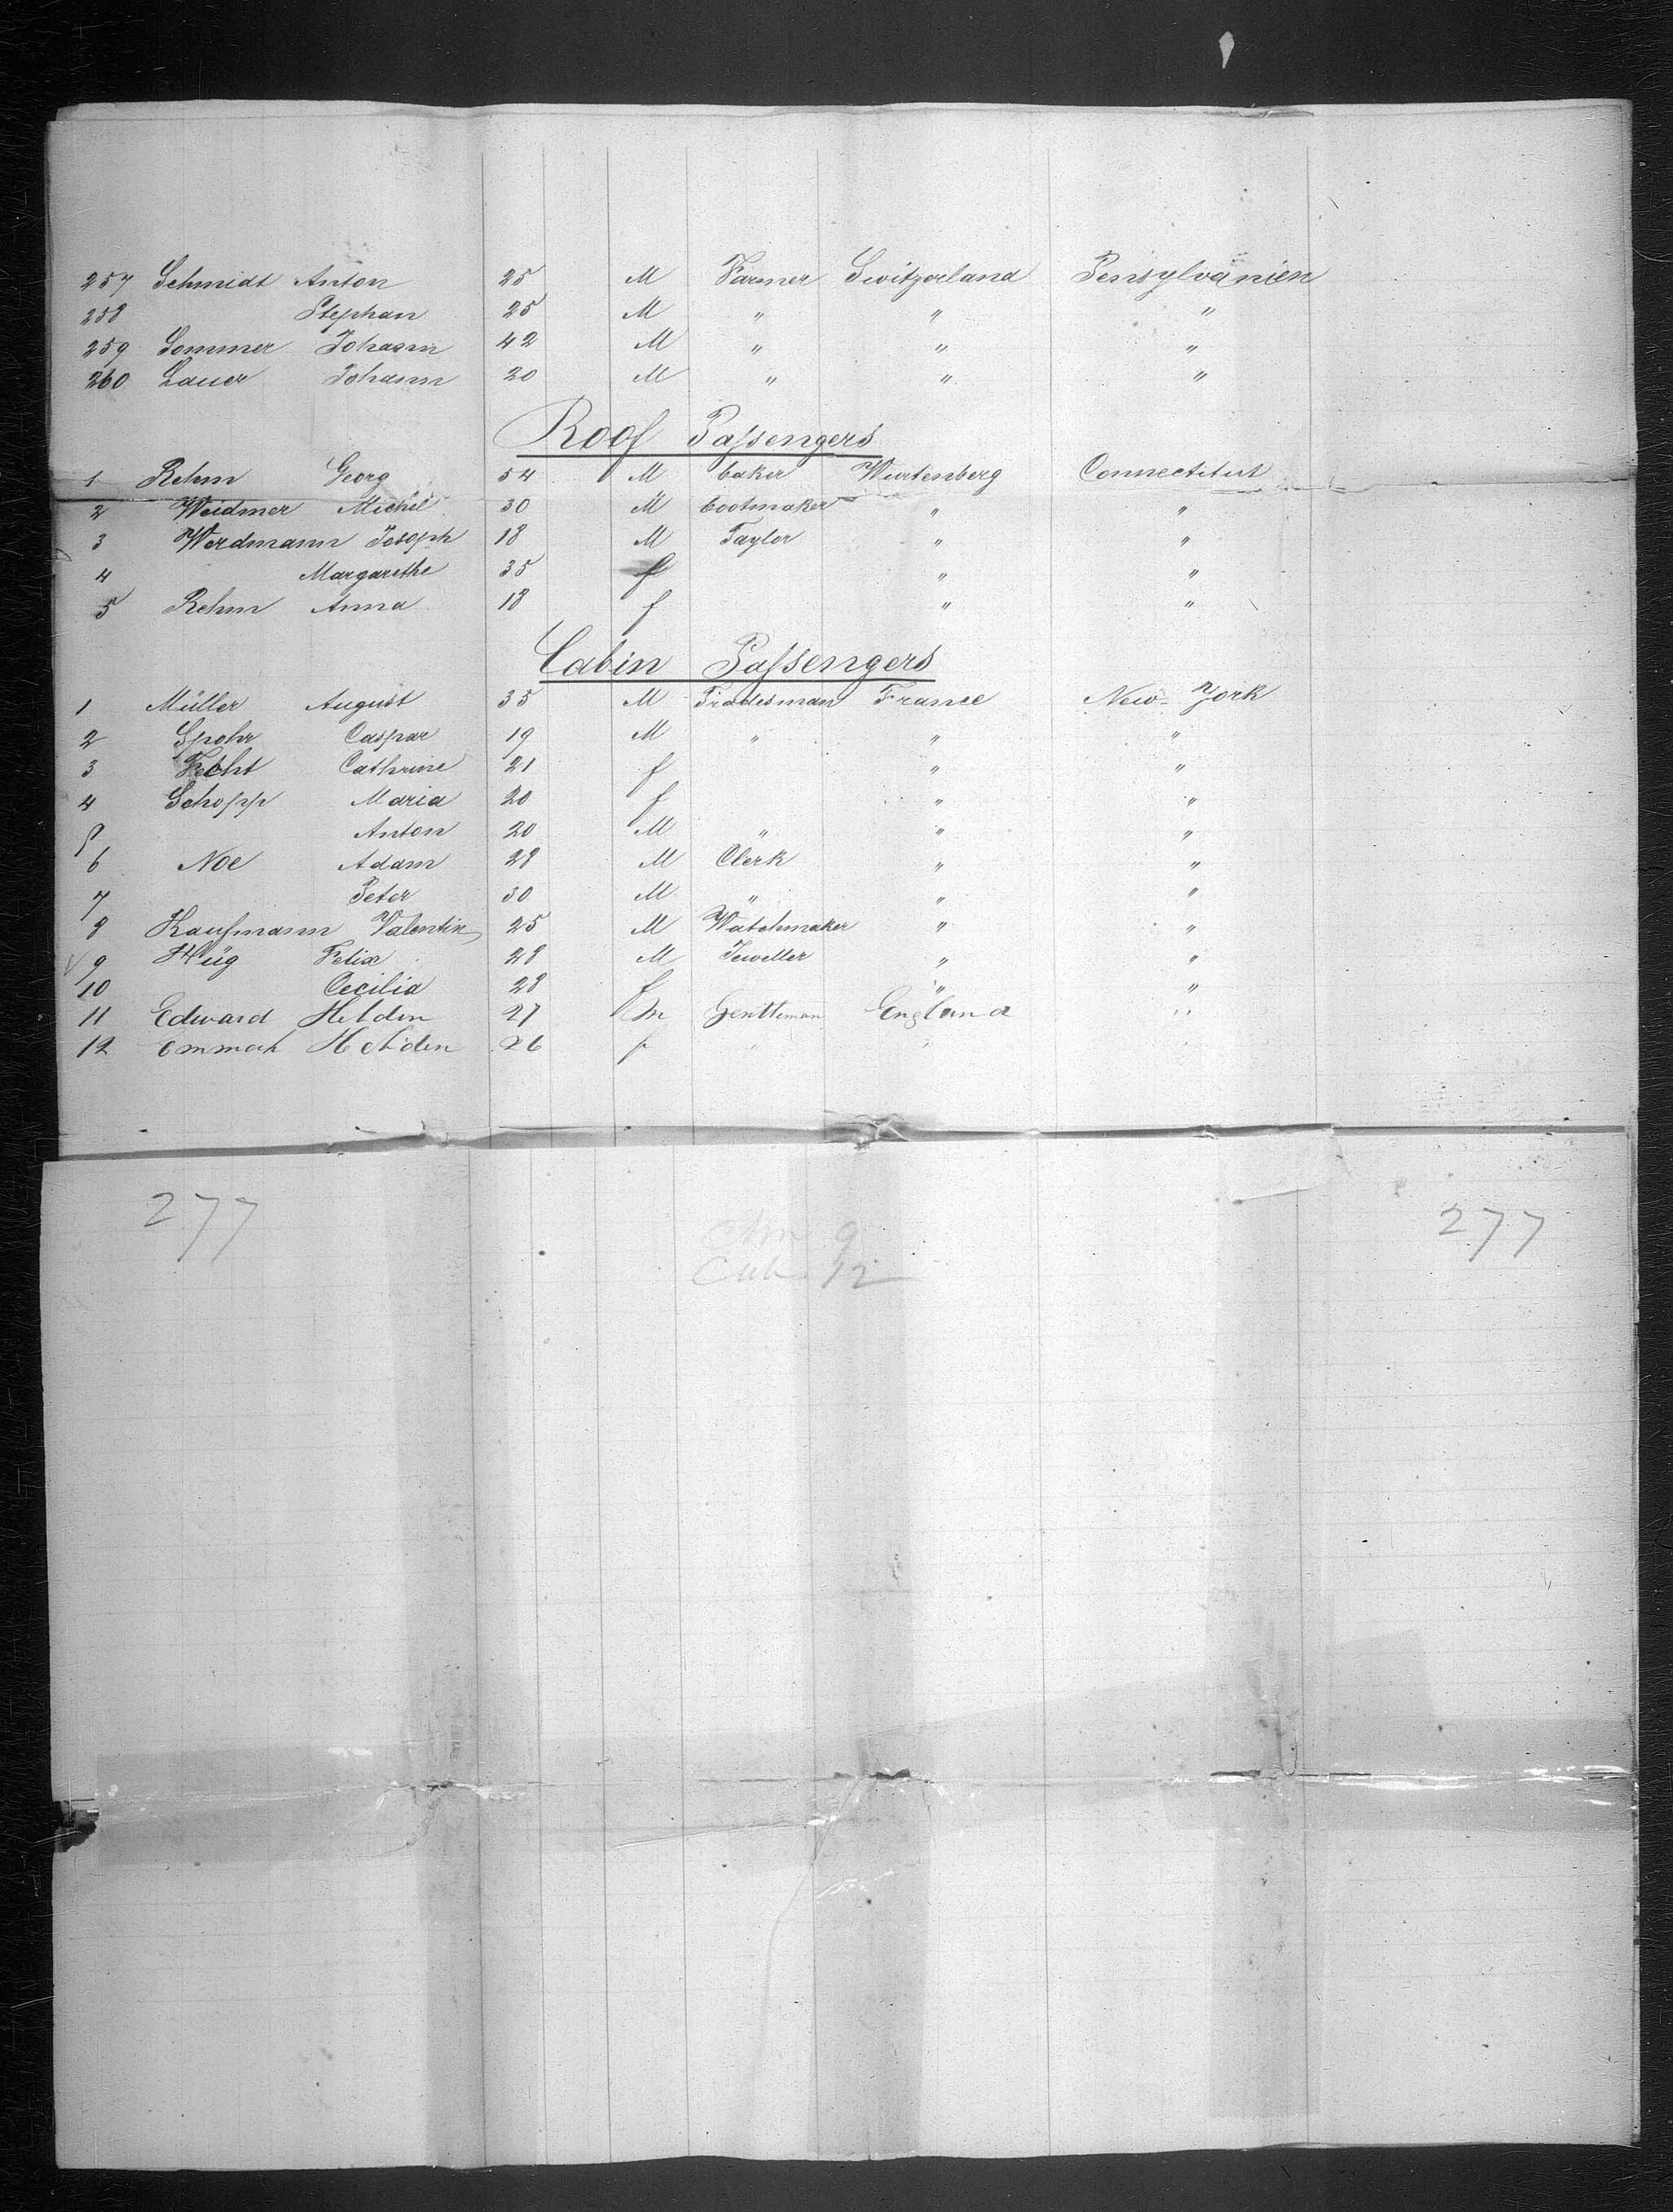 257 Schmidt Anton 25 M Farmer Switzerland Pensylvanien
258 Stephan 25 M " " "
259 Sommer Johann 42 M " " "
260 Lauer Johann 20 M " " "
Roof Passengers
1 Rehm Georg 54 M baker Wurtenberg Connectitut
2 Weidmer Michel 30 M bootmaker " "
3 Werdmann Joseph 18 M Taylor " "
4 Margarethe 35 f " "
5 Rehm Anna 18 f " "
Cabin Passengers
1 Müller August 35 M Tradesman France New-York
2 Spohr Caspar 19 M " " "
3 Cathrine 21 f " "
4 Schopp Maria 20 f " "
5 Anton 20 M " " "
6 Noe Adam 28 M Clerk " "
7 Peter 30 M " " "
8 Kaufmann Valentin 25 M Watchmaker " "
9 Hüg Felix 28 M Jeweller " "
10 Cecilia 28 f " "
11 Edward Helden 27 m Gentleman England "
12 Emmah Helden 26 f " " "
277 277
9
Cab 12